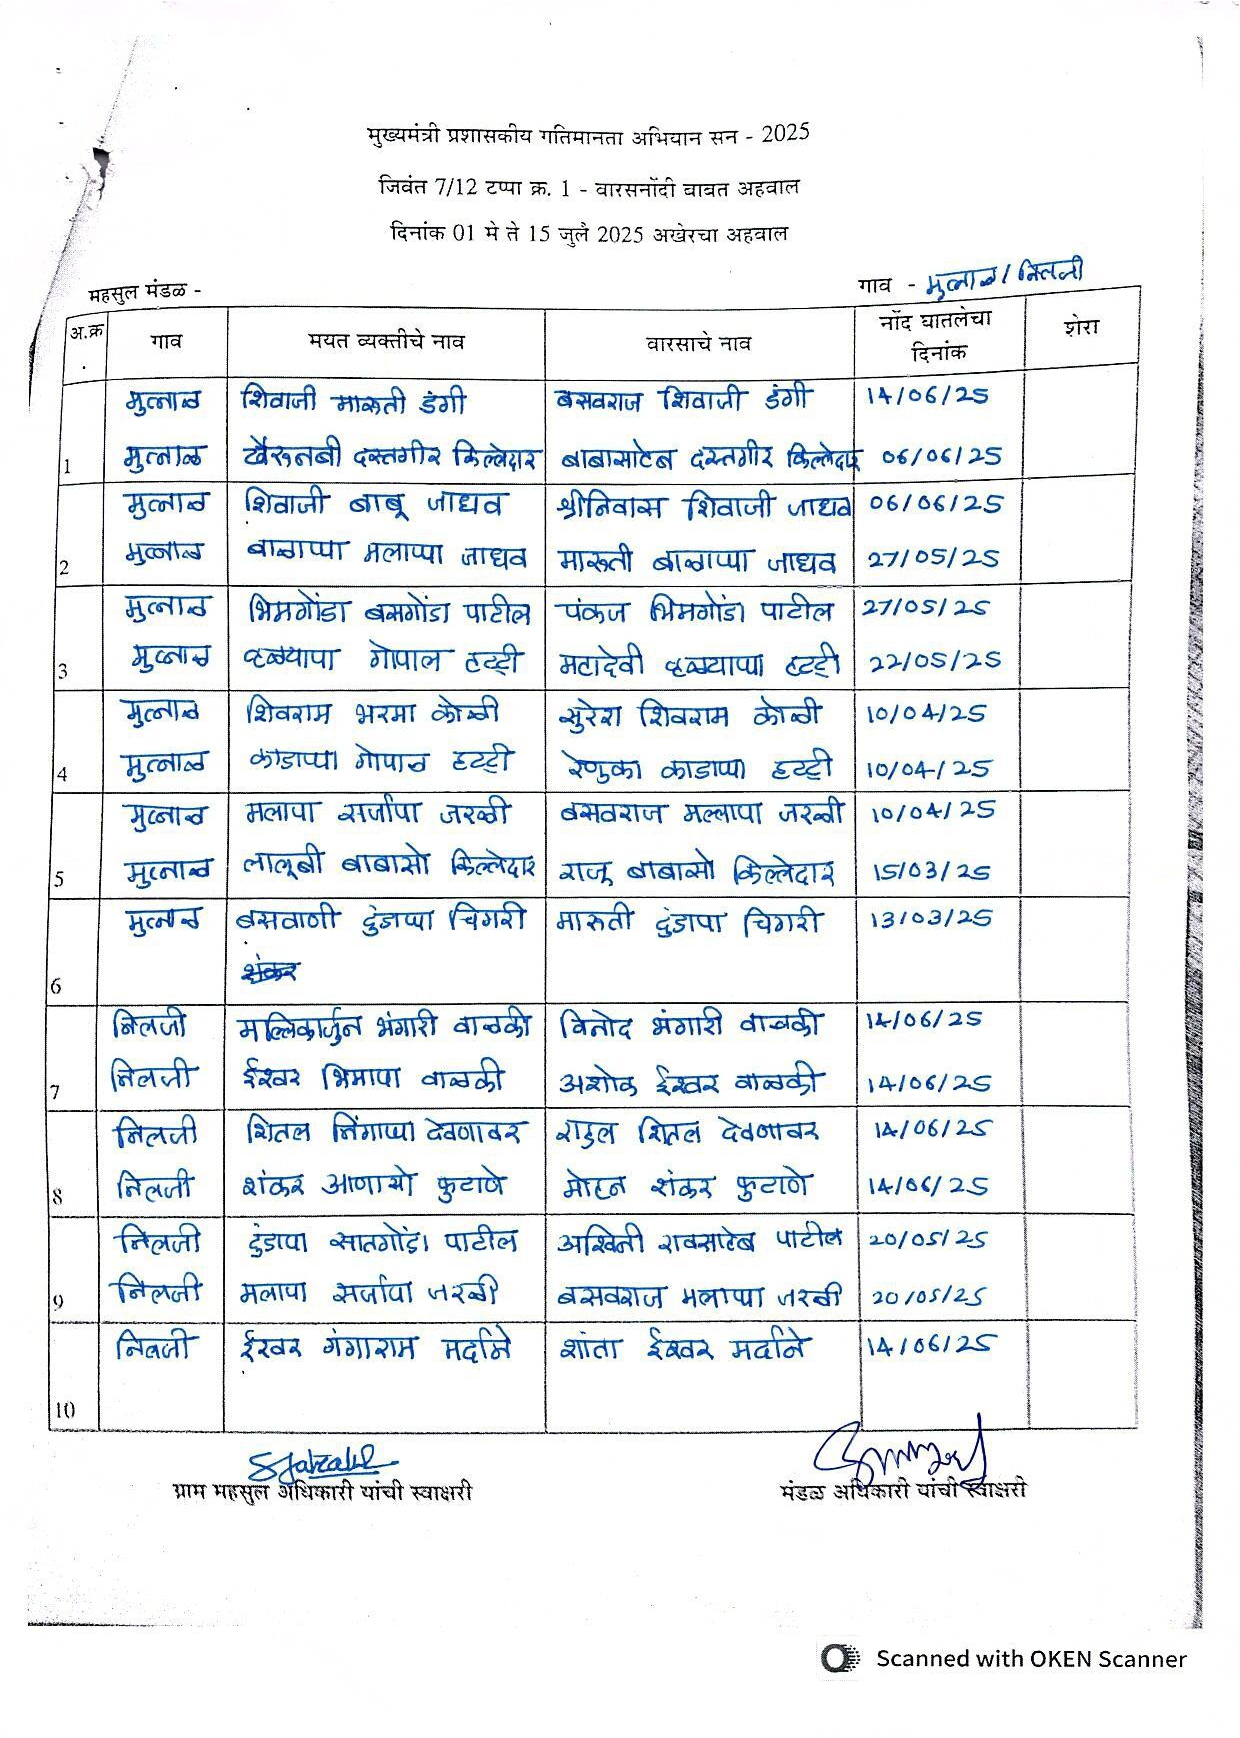 मुख्यमंत्री प्रशासकीय गतिमानता अभियान सन - 2025
जिवंत 7/12 टप्पा क्र. 1 - वारसनोंदी बाबत अहवाल
दिनांक 01 मे ते 15 जुलै 2025 अखेरचा अहवाल
महसुल मंडळ -
गाव - मुत्नाळ / निलजी
अ.क्र. गाव मयत व्यक्तीचे नाव वारसाचे नाव नोंद घातलेचा दिनांक शेरा
मुत्नाळ शिवाजी मारुती डंगी बसवराज शिवाजी डंगी 14/06/25
1 मुत्नाळ खैरुनबी दस्तगीर किल्लेदार बाबासाहेब दस्तगीर किल्लेदार 06/06/25
मुत्नाळ शिवाजी बाबू जाधव श्रीनिवास शिवाजी जाधव 06/06/25
2 मुत्नाळ बाळाप्पा मलाप्पा जाधव मारुती बाळाप्पा जाधव 27/05/25
मुत्नाळ भिमगोंडा बसगोंडा पाटील पंकज भिमगोंडा पाटील 27/05/25
3 मुत्नाळ गोपाल हट्टी महादेवी हट्टी 22/05/25
मुत्नाळ शिवराम भरमा कोळी सुरेश शिवराम कोळी 10/04/25
4 मुत्नाळ काडाप्पा गोपाळ हट्टी रेणुका काडाप्पा हट्टी 10/04/25
मुत्नाळ मलापा सर्जापा जरळी बसवराज मल्लापा जरळी 10/04/25
5 मुत्नाळ लालूबी बाबासो किल्लेदार राजू बाबासो किल्लेदार 15/03/25
मुत्नाळ बसवाणी दुंडाप्पा चिगरी मारुती दुंडापा चिगरी 13/03/25
6 शंकर
निलजी मल्लिकार्जुन भंगारी वाळकी विनोद भंगारी वाळकी 14/06/25
7 निलजी ईश्वर भिमापा वाळकी अशोक ईश्वर वाळकी 14/06/25
निलजी शितल निंगाप्पा देवणावर राहुल शितल देवणावर 14/06/25
8 निलजी शंकर आणासो कुटाणे मोहन शंकर कुटाणे 14/06/25
निलजी दुंडापा सातगोंडा पाटील अश्विनी रावसाहेब पाटील 20/05/25
9 निलजी मलापा सर्जापा जरळी बसवराज मलाप्पा जरळी 20/05/25
निलजी ईश्वर गंगाराम मर्दाने शांता ईश्वर मर्दाने 14/06/25
10
ग्राम महसुल अधिकारी यांची स्वाक्षरी
मंडळ अधिकारी यांची स्वाक्षरी
Scanned with OKEN Scanner